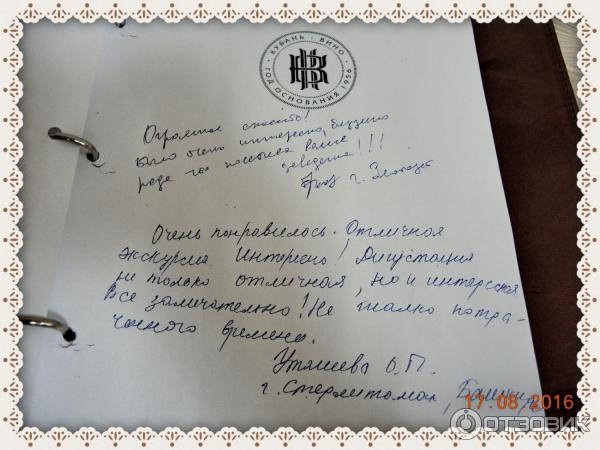 КУБАНЬ · ВИНО
ГОД ОСНОВАНИЯ 1956
Огромное спасибо!
Было очень интересно, безумно
рады что посетили ваше
заведение!!!
г.
Очень понравилось. Отличная
экскурсия. Интересно! Дигустация
не только отличная, но и интересная
Все замечательно! Не жалко потра-
ченного времени.
Утяшева О.П.
г. Стерлитамак, Башкир
17.08.2016
ОТЗОВИК